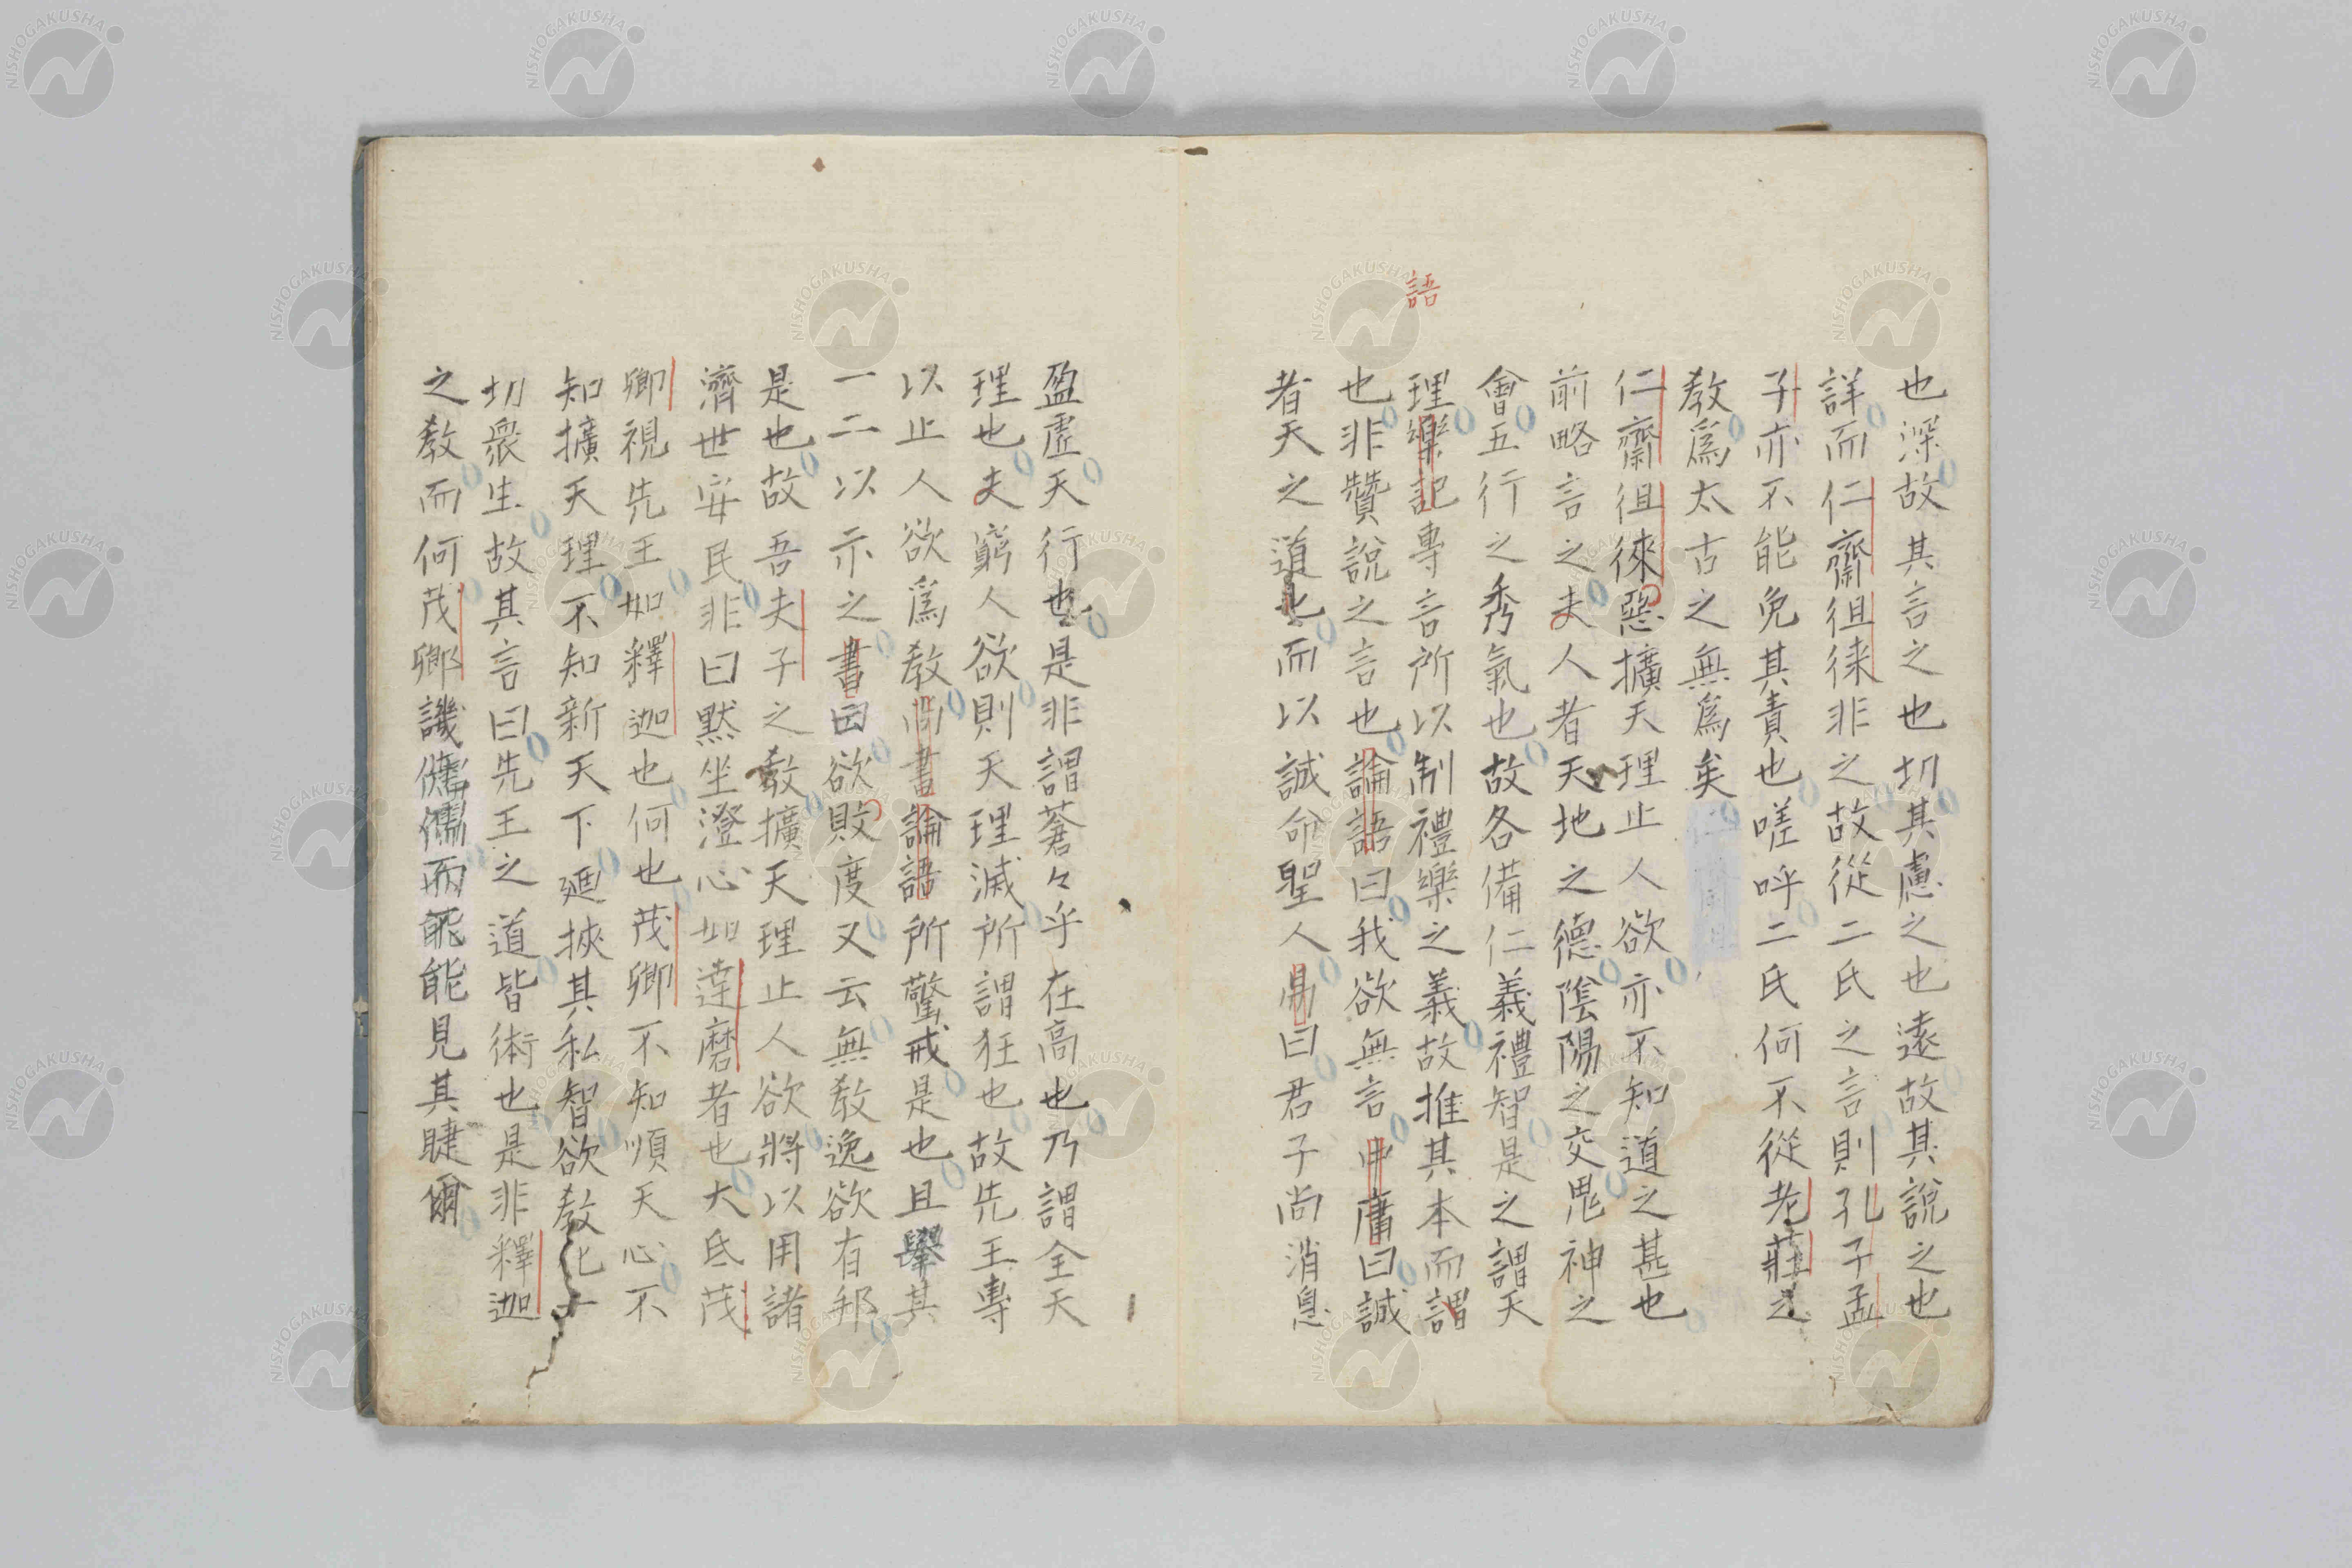 語
也深故其言之也切其慮之也遠故其說之也
詳而仁齋徂徠非之故從二氏之言則孔子孟
子亦不能免其責也嗟呼二氏何不從老莊之
教爲太古之無爲矣
仁齋徂徠惡擴天理止人欲亦不知道之甚也
前略言之夫人者天地之德陰陽之交鬼神之
會五行之秀氣也故各備仁義禮智是之謂天
理樂記專言所以制禮樂之義故推其本而謂
也非贊說之言也論語曰我欲無言中庸曰誠
者天之道也而以誠命聖人易曰君子尚消息
盈虛天行也是非謂蒼々乎在高也乃謂全天
理也夫窮人欲則天理滅所謂狂也故先王專
以止人欲爲教尚書論語所驚戒是也且擧其
一二以示之書曰欲敗度又云無教逸欲有邦
是也故吾夫子之教擴天理止人欲將以用諸
濟世安民非曰默坐澄心如達磨者也大氐茂
卿視先王如釋迦也何也茂卿不知順天心不
知擴天理不知新天下廼挾其私智欲教化一
切衆生故其言曰先王之道皆術也是非釋迦
之教而何茂卿譏儒而能見其睫爾
NISHOGAKUSHA